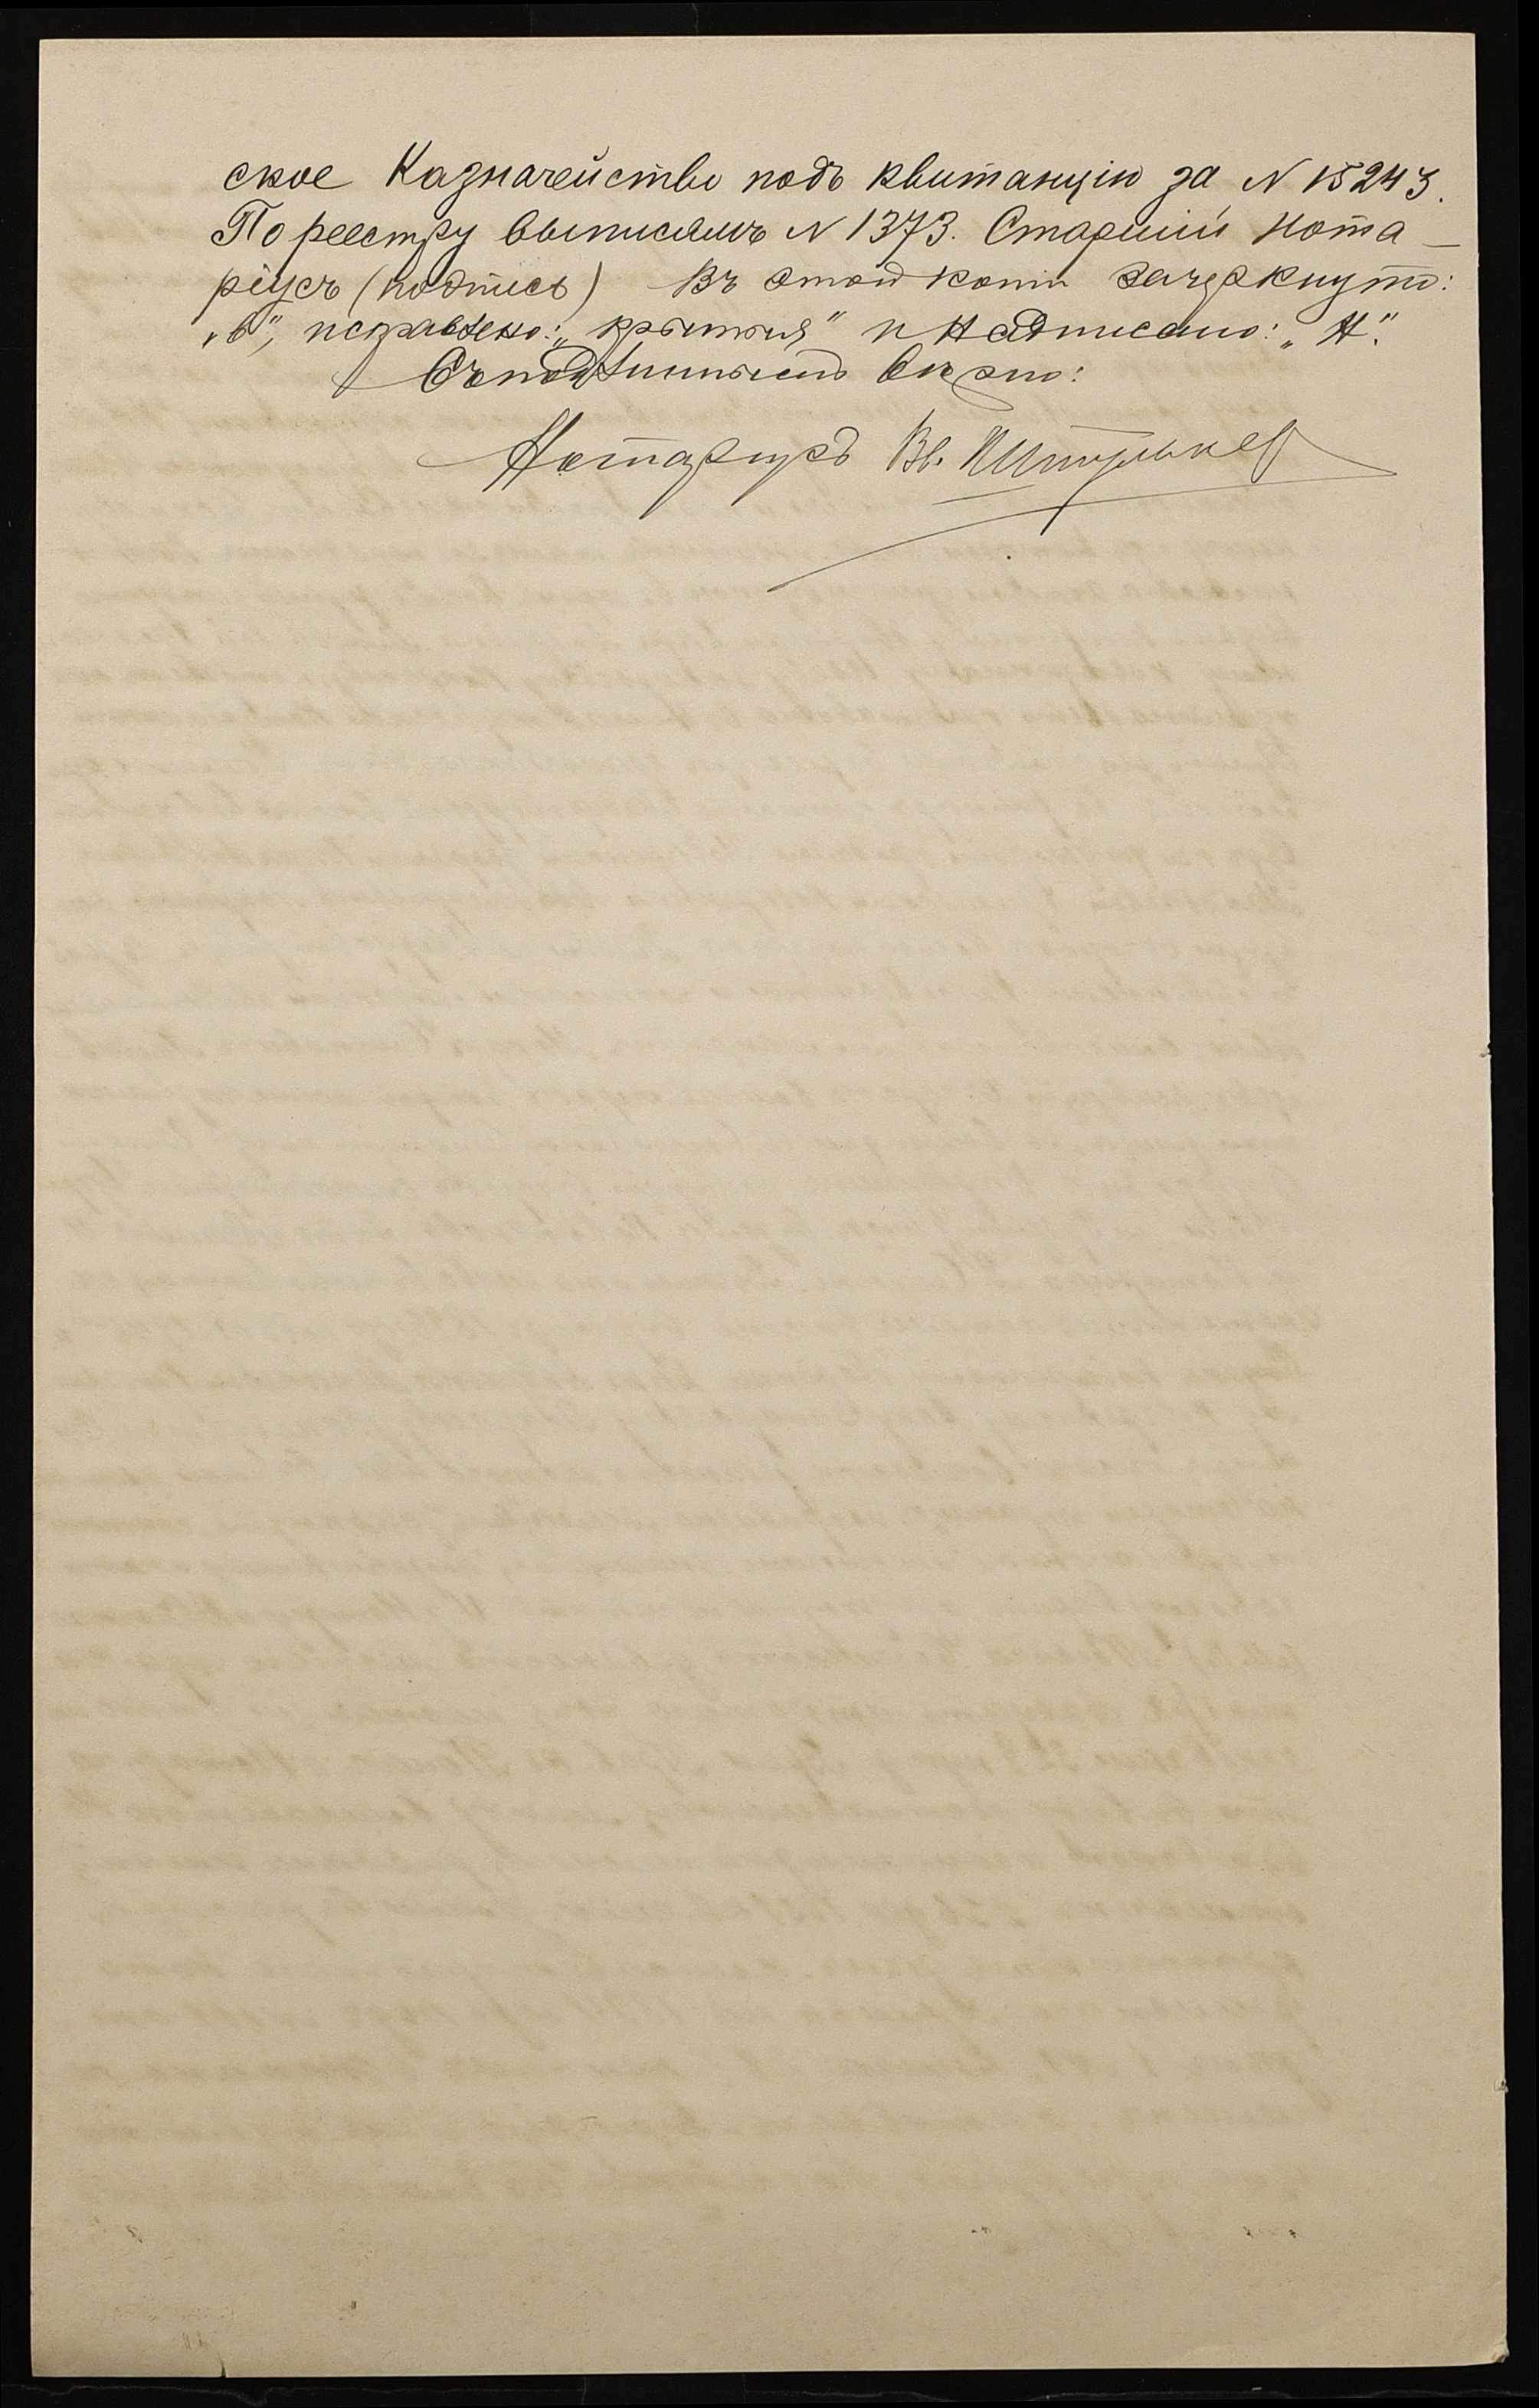 ское Казначейство подъ квитанцію за N 15243.
По реестру выписамъ N 1373. Старшій Нота-
ріусъ (подпись) Въ этой копіи зачеркнуто:
„в", исправлено: „крытыя" и надписано: „н".
Съ подлиннымъ вѣрно:
Нотаріусъ Вл.